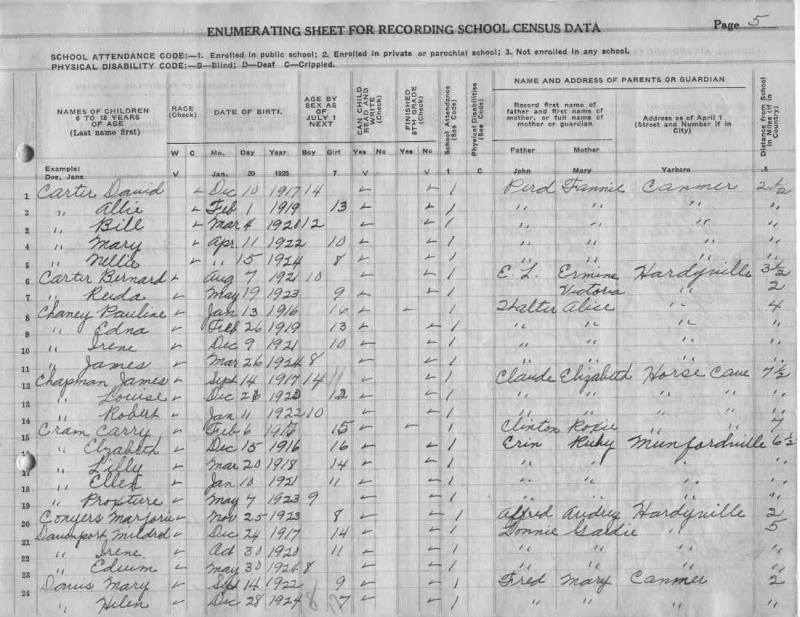 ENUMERATING SHEET FOR RECORDING SCHOOL CENSUS DATA Page 5
SCHOOL ATTENDANCE CODE:—1. Enrolled in public school; 2. Enrolled in private or parochial school; 3. Not enrolled in any school.
PHYSICAL DISABILITY CODE:—B—Blind; D—Deaf C—Crippled.
NAMES OF CHILDREN 6 TO 18 YEARS OF AGE (Last name first)
RACE (Check)
DATE OF BIRTH.
AGE BY SEX AS OF JULY 1 NEXT
CAN CHILD READ AND WRITE (Check)
FINISHED 8TH GRADE (Check)
School Attendance (See Code)
Physical Disabilities (See Code)
NAME AND ADDRESS OF PARENTS OR GUARDIAN
Record first name of father and first name of mother, or full name of mother or guardian
Address as of April 1 (Street and Number if in City)
Distance from School in Miles (if in Country)
W C Mo. Day Year Boy Girl Yes No Yes No Father Mother
Example:
Doe, Jane V Jan. 20 1925 7 V V 1 C John Mary Yarboro .5
1 Carter David ✓ Dec 10 1917 14 ✓ ✓ 1 Perd Fannie Canmer 2½
2 " Allie ✓ Feb 1 1919 13 ✓ ✓ 1 " " " "
3 " Bill ✓ Mar 4 1920 12 ✓ ✓ 1 " " " "
4 " Mary ✓ Apr 11 1922 10 ✓ ✓ 1 " " " "
5 " Nellie ✓ " 15 1924 8 ✓ ✓ 1 " " " "
6 Carter Bernard ✓ Aug 7 1921 10 ✓ ✓ 1 E. L. Ermine Hardyville 3½
7 " Reida ✓ May 19 1923 9 ✓ ✓ 1 Victoria " 2
8 Chaney Pauline ✓ Jan 13 1916 16 ✓ – 1 Halter Alice " 4
9 " Edna ✓ Feb 26 1919 13 ✓ ✓ 1 " " " "
10 " Irene ✓ Dec 9 1921 10 ✓ ✓ 1 " " " "
11 " James ✓ Mar 26 1924 8 ✓ ✓ 1 " " " "
12 Chapman James ✓ Sept 14 1917 14 ✓ ✓ 1 Claude Elizabeth Horse Cave 7½
13 " Louise ✓ Dec 1920 12 ✓ ✓ 1 " " " "
14 " Robert ✓ Jan 11 1922 10 ✓ ✓ 1 " " " "
15 Cram Carry ✓ Feb 6 15 ✓ – 1 Clinton Roxie " 7
" Elzabeth ✓ Dec 15 1916 16 ✓ ✓ 1 Erin Ruby Munfordville 6½
17 " Lilly ✓ Mar 20 1918 14 ✓ ✓ 1 " " " "
" Ellen ✓ Jan 10 1921 11 ✓ ✓ 1 " " " "
19 " ✓ May 7 1923 9 ✓ 1 " " " "
20 Conyers Marjorie ✓ Nov 25 1923 8 ✓ ✓ 1 Alfred Audrey Hardyville 2
21 Davenport Mildred ✓ Dec 24 1917 14 ✓ ✓ 1 Lonnie Gardie " 5
22 " Irene ✓ Oct 30 1920 11 ✓ ✓ 1 " " " "
23 " ✓ May 30 1924 8 ✓ ✓ 1 " " " "
24 Davis Mary ✓ Sept 14 1922 9 ✓ ✓ 1 Fred Mary Canmer 2
" Hilen ✓ Dec 28 1924 7 ✓ ✓ 1 " " " "